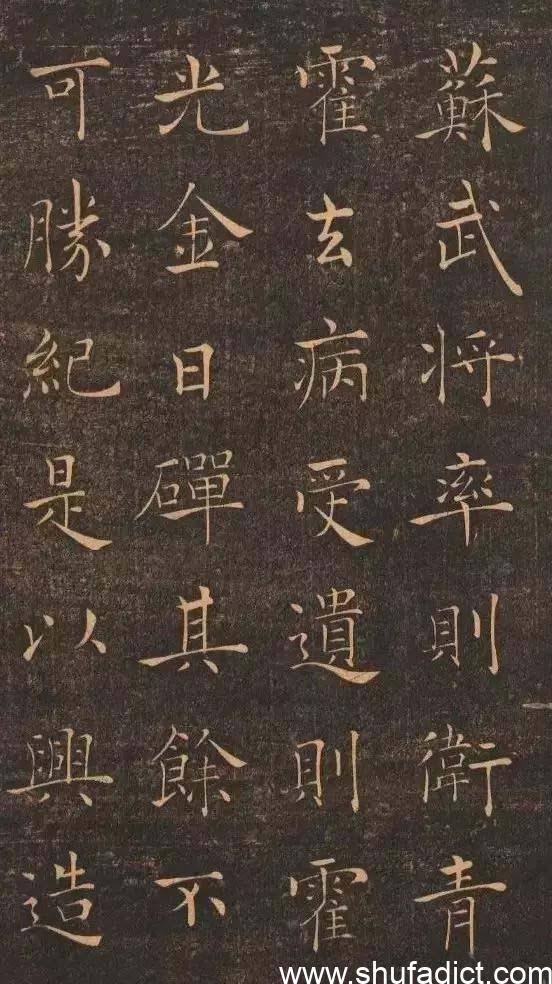 蘇武將率則衛青
霍去病受遺則霍
光金日磾其餘不
可勝紀是以興造
www.shufadict.com